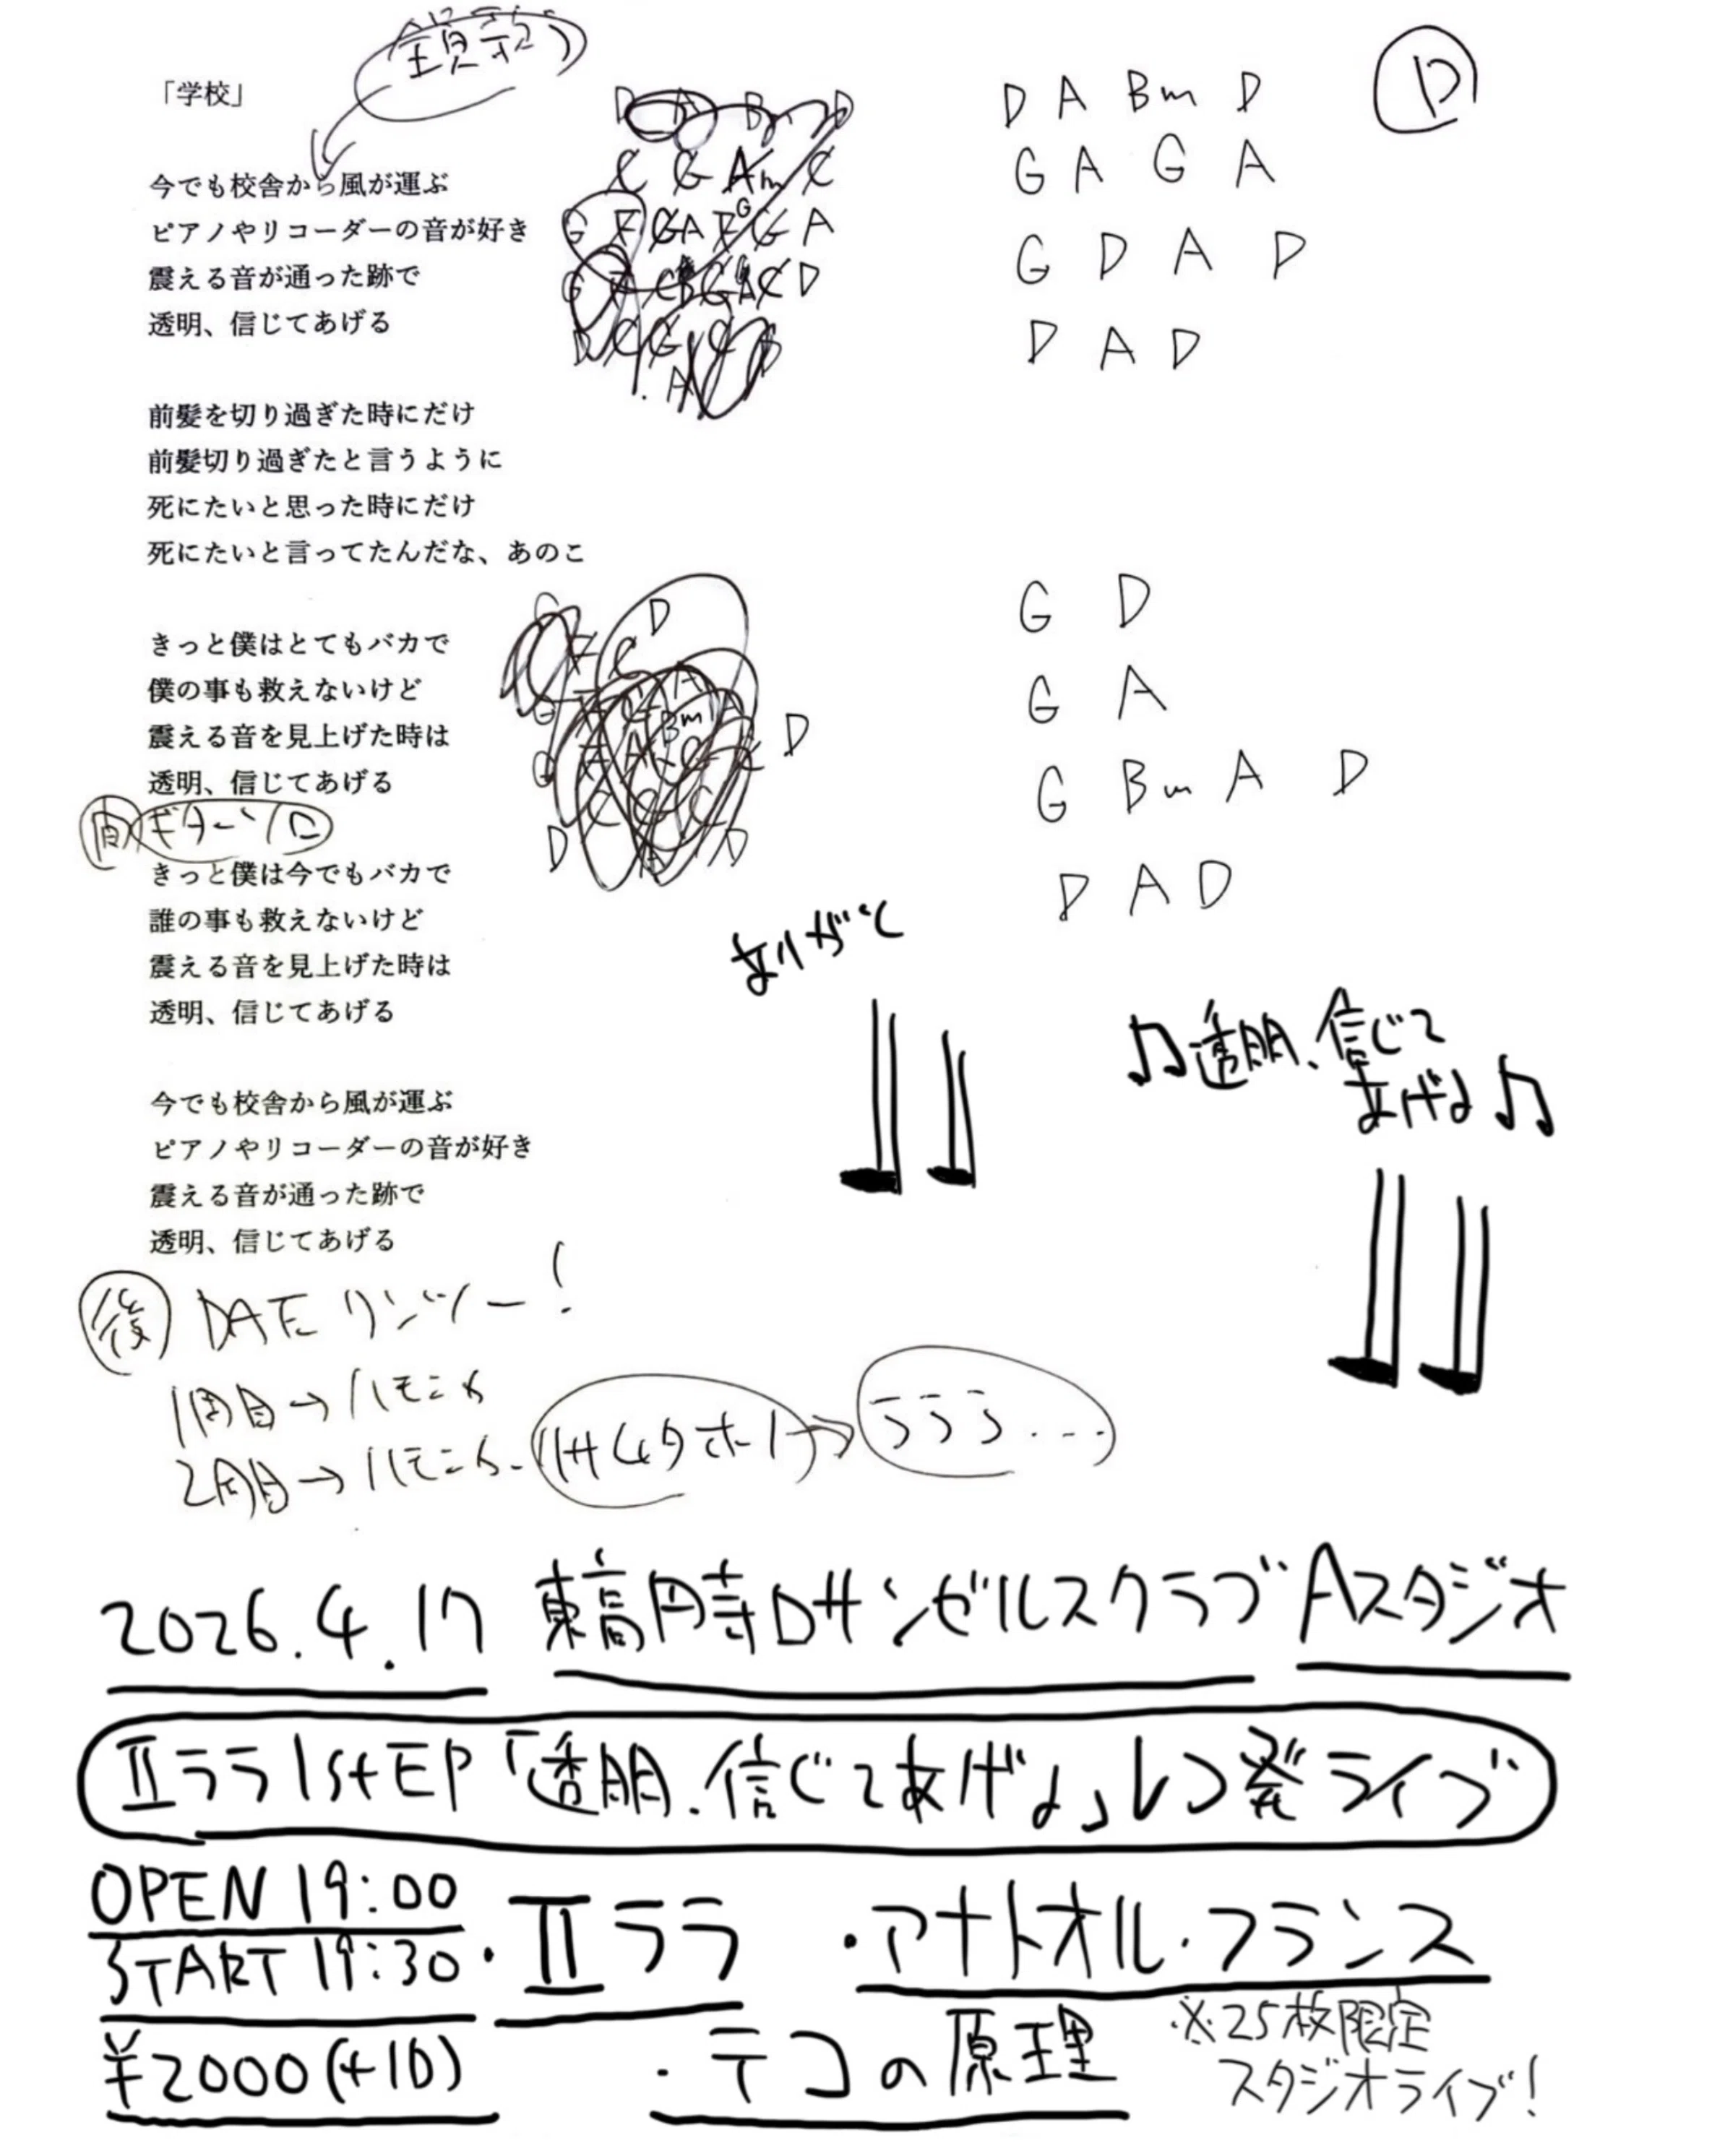 「学校」
今でも校舎から風が運ぶ
ピアノやリコーダーの音が好き
震える音が通った跡で
透明、信じてあげる
前髪を切り過ぎた時にだけ
前髪切り過ぎたと言うように
死にたいと思った時にだけ
死にたいと言ってたんだな、あのこ
きっと僕はとてもバカで
僕の事も救えないけど
震える音を見上げた時は
透明、信じてあげる
間 ギターソロ
きっと僕は今でもバカで
誰の事も救えないけど
震える音を見上げた時は
透明、信じてあげる
今でも校舎から風が運ぶ
ピアノやリコーダーの音が好き
震える音が通った跡で
透明、信じてあげる
後
1周目→ハモニカ
2周目→ハモニカ
ララララ...
D
D A Bm D
G A G A
G D A D
D A D
G D
G A
G Bm A D
D A D
ありがと
♫透明、信じて
あげる♫
2026.4.17 東高円寺Uサンゼルスクラブ Aスタジオ
IIララ 1st EP「透明、信じてあげる」レコ発ライブ
OPEN 19:00
START 19:30
¥2000(+1D)
・IIララ
・アナトオル・フランス
・テコの原理
※25枚限定
スタジオライブ!